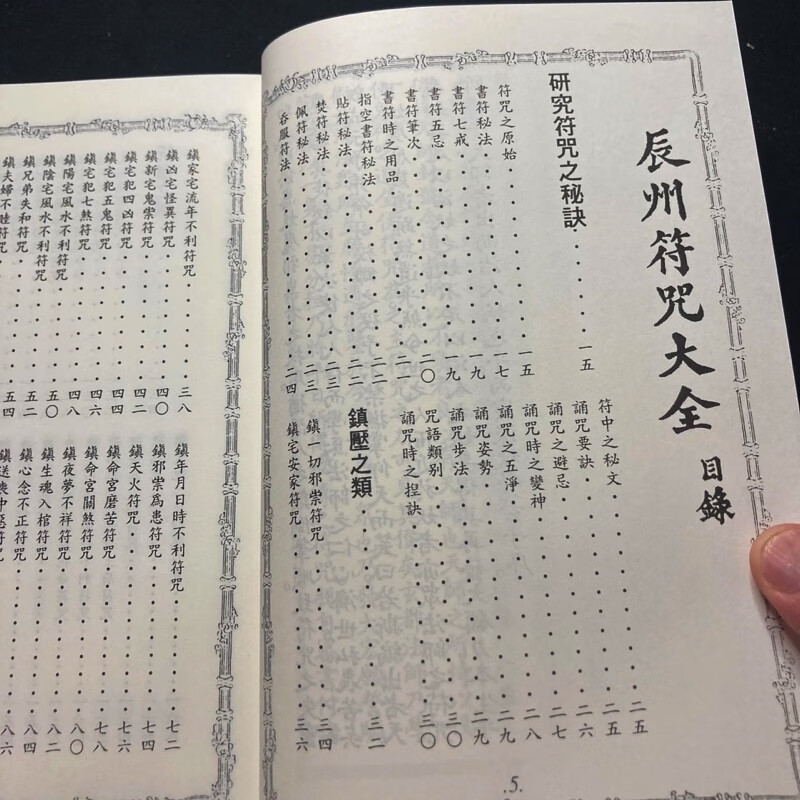 辰州符咒大全 目錄
研究符咒之秘訣……一五
符咒之原始……一五
書符秘法……一七
書符七戒……一九
書符五忌……一九
書符筆次……二〇
書符時之用品……二一
指空書符秘法……二二
貼符秘法……二二
焚符秘法……二三
佩符秘法……二三
吞服符法……二四
符中之秘文……二五
誦咒要訣……二五
誦咒之避忌……二六
誦咒時之變神……二七
誦咒之五淨……二八
誦咒姿勢……二九
誦咒步法……二九
咒語類別……三〇
誦咒時之揑訣……三〇
鎮壓之類……三二
鎮一切邪祟符咒……三四
鎮宅安家符咒……三六
.5.
鎮家宅流年不利符咒……三八
鎮凶宅怪異符咒……四〇
鎮新宅鬼祟符咒……四二
鎮宅犯四凶符咒……四四
鎮宅犯五鬼符咒……四六
鎮宅犯七煞符咒……四八
鎮陽宅風水不利符咒……五〇
鎮陰宅風水不利符咒……五二
鎮兄弟失和符咒……五四
鎮夫婦不睦符咒
鎮年月日時不利符咒……七二
鎮邪祟爲患符咒……七四
鎮天火符咒……七六
鎮命宮磨苦符咒……七八
鎮命宮關煞符咒……八〇
鎮夜夢不祥符咒……八二
鎮生魂入棺符咒……八四
鎮心念不正符咒……八六